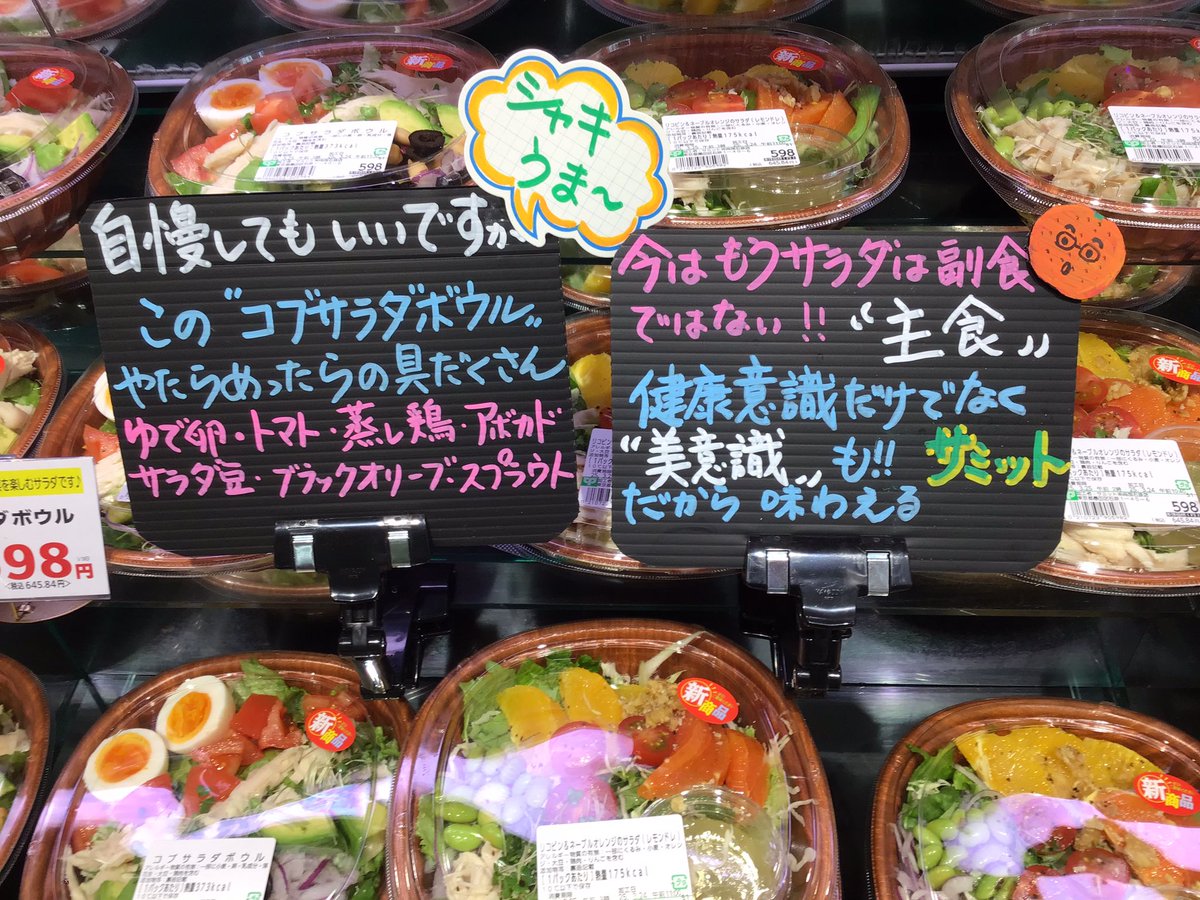 シャキ
うま〜
自慢してもいいですか
この〝コブサラダボウル〟
やたらめったらの具だくさん
ゆで卵・トマト・蒸し鶏・アボカド
サラダ豆・ブラックオリーブ・スプラウト
今はもうサラダは副食
ではない!! 〝主食〟
健康意識だけでなく
〝美意識〟も!! ザミット
だから 味わえる
を楽しむサラダです♪
ダボウル
98円
<税込645.84円>
コブサラダボウル
熱量373kcal
598
新商品
リコピン&ネーブルオレンジのサラダ(レモンドレ)
熱量175kcal
598
リコピン&ネーブルオレンジのサラダ(レモンドレ)
1パックあたり 熱量175kcal
598
645.84
新商品
598
645.84
新商品
コブサラダボウル
1パックあたり 熱量373kcal
10℃以下で保存
新商品
リコピン&ネーブルオレンジのサラダ(レモンドレ)
1パックあたり 熱量175kcal
10℃以下で保存
新商品